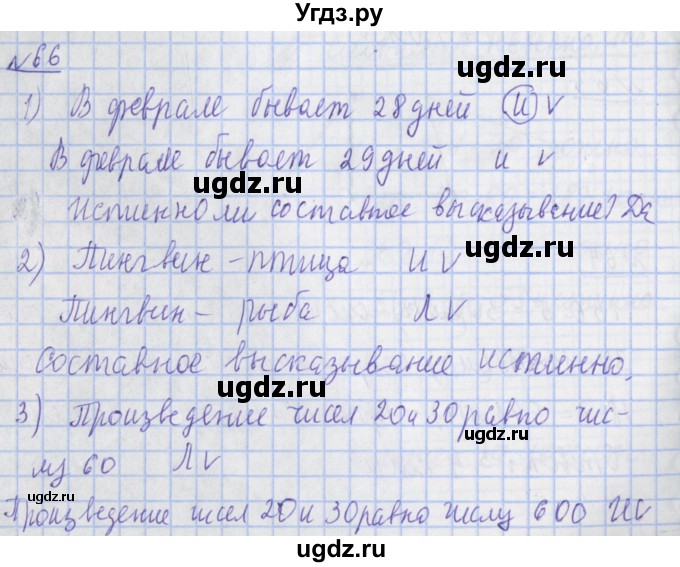 Угдз.ру
№66
ugdz.ru
1) В феврале бывает 28 дней И V
В феврале бывает 29 дней и V
ugdz.ru
Истинно ли составное высказывание? Да
ugdz.ru
2) Пингвин - птица И V
Пингвин - рыба Л V
ugdz.ru
Составное высказывание истинно.
ugdz.ru
3) Произведение чисел 20 и 30 равно чис-
ugdz.ru
лу 60 Л V
ugdz.ru
Произведение чисел 20 и 30 равно числу 600 И V
ugdz.ru
ugdz.ru